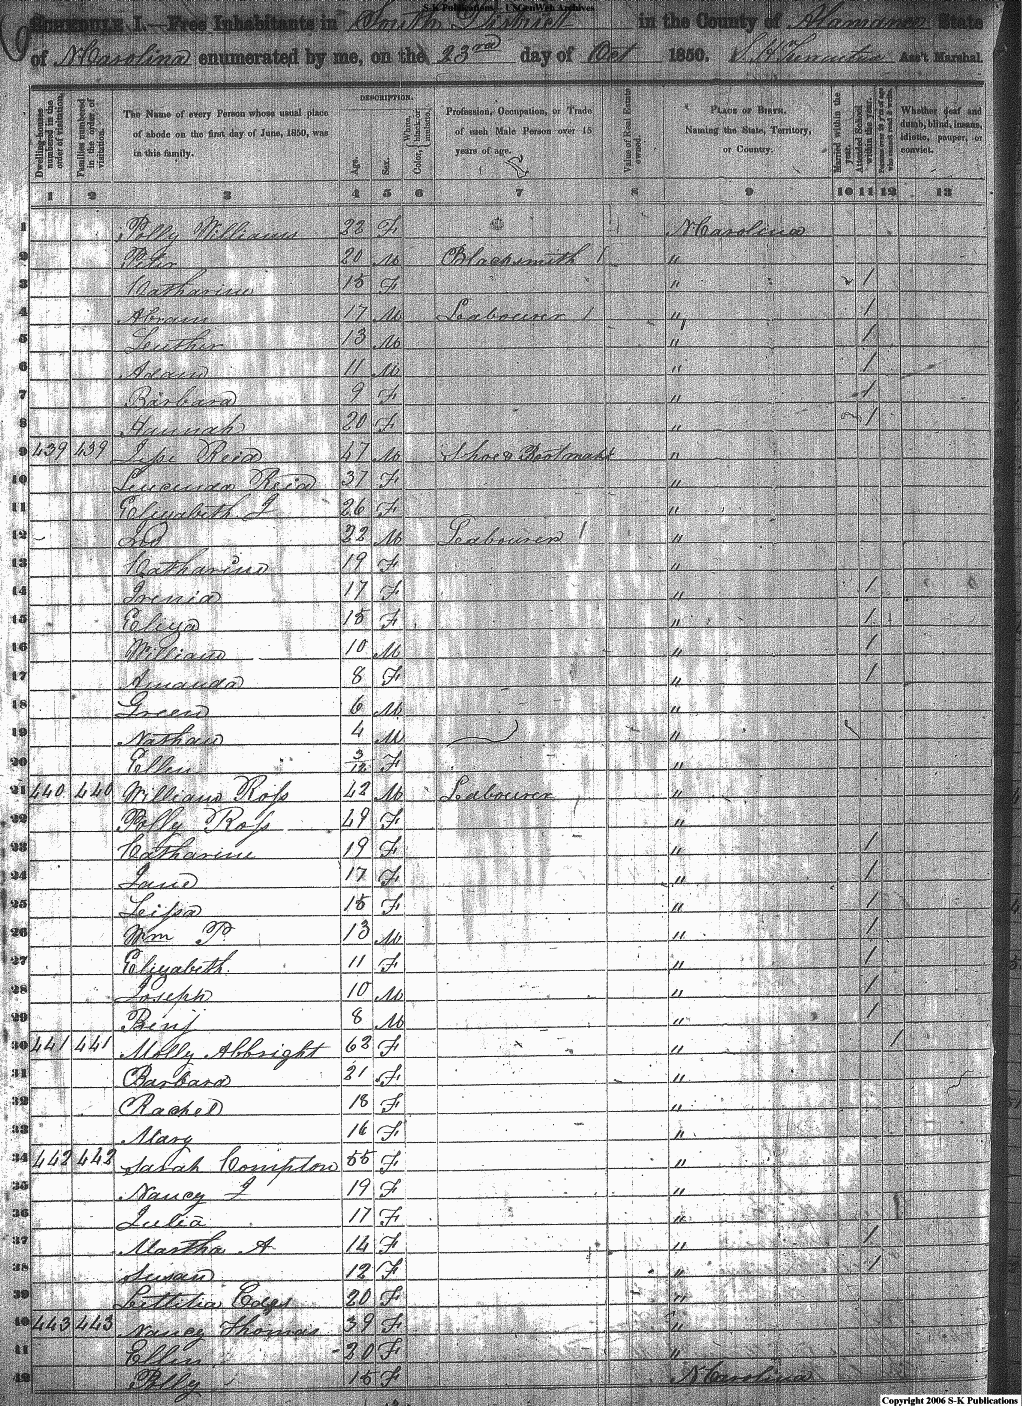 S-K Publications - USGenWeb Archives
SCHEDULE I.—Free Inhabitants in South District in the County of Alamance State
of N Carolina enumerated by me, on the 23rd day of Oct 1850. Ass't Marshal.
Dwelling-houses numbered in the order of visitation.
Families numbered in the order of visitation.
The Name of every Person whose usual place of abode on the first day of June, 1850, was in this family.
DESCRIPTION.
Age.
Sex.
Color, White, black, or mulatto.
Profession, Occupation, or Trade of each Male Person over 15 years of age.
Value of Real Estate owned.
PLACE OF BIRTH. Naming the State, Territory, or Country.
Married within the year.
Attended School within the year.
Persons over 20 y'rs of age who cannot read & write.
Whether deaf and dumb, blind, insane, idiotic, pauper, or convict.
1 2 3 4 5 6 7 8 9 10 11 12 13
1 Polly Williams 22 F N Carolina
2 Peter 20 M Blacksmith 1 "
3 Catharine 15 F " 1
4 Abram 17 M Labourer 1 " 1
5 Luther 13 M " 1
6 Adam 11 M " 1
7 Barbara 9 F " 1
8 Hannah 20 F " 1
9 439 439 Reid 47 M Shoe & Bootmaker "
10 Lucinda Reid 37 F "
11 Elizabeth J 26 F "
12 22 M Labourer 1 "
13 Catharine 19 F "
14 Irenia 17 F " 1
15 Eliza 15 F " 1
16 William 10 M " 1
17 Amanda 8 F " 1
18 Green 6 M "
19 Nathan 4 M "
20 Ellen 3/12 F "
21 440 440 William Ross 42 M Labourer "
22 Polly Ross 49 F "
23 Catharine 19 F " 1
24 Jane 17 F " 1
25 Leissa 15 F " 1
26 Wm P. 13 M " 1
27 Elizabeth 11 F " 1
28 Joseph 10 M " 1
29 Benj 8 M " 1
30 441 441 Molly Albright 62 F " 1
31 Barbara 21 F "
32 Rachel 18 F "
33 Mary 16 F "
34 442 442 Sarah Compton 55 F "
35 Nancy J 19 F "
36 Julia 17 F "
37 Martha A 14 F " 1
38 Susan 12 F " 1
39 Lettitia 20 F "
40 443 443 Nancy Thomas 39 F "
41 Ellen 20 F "
42 Polly 15 F N Carolina
Copyright 2006 S-K Publications